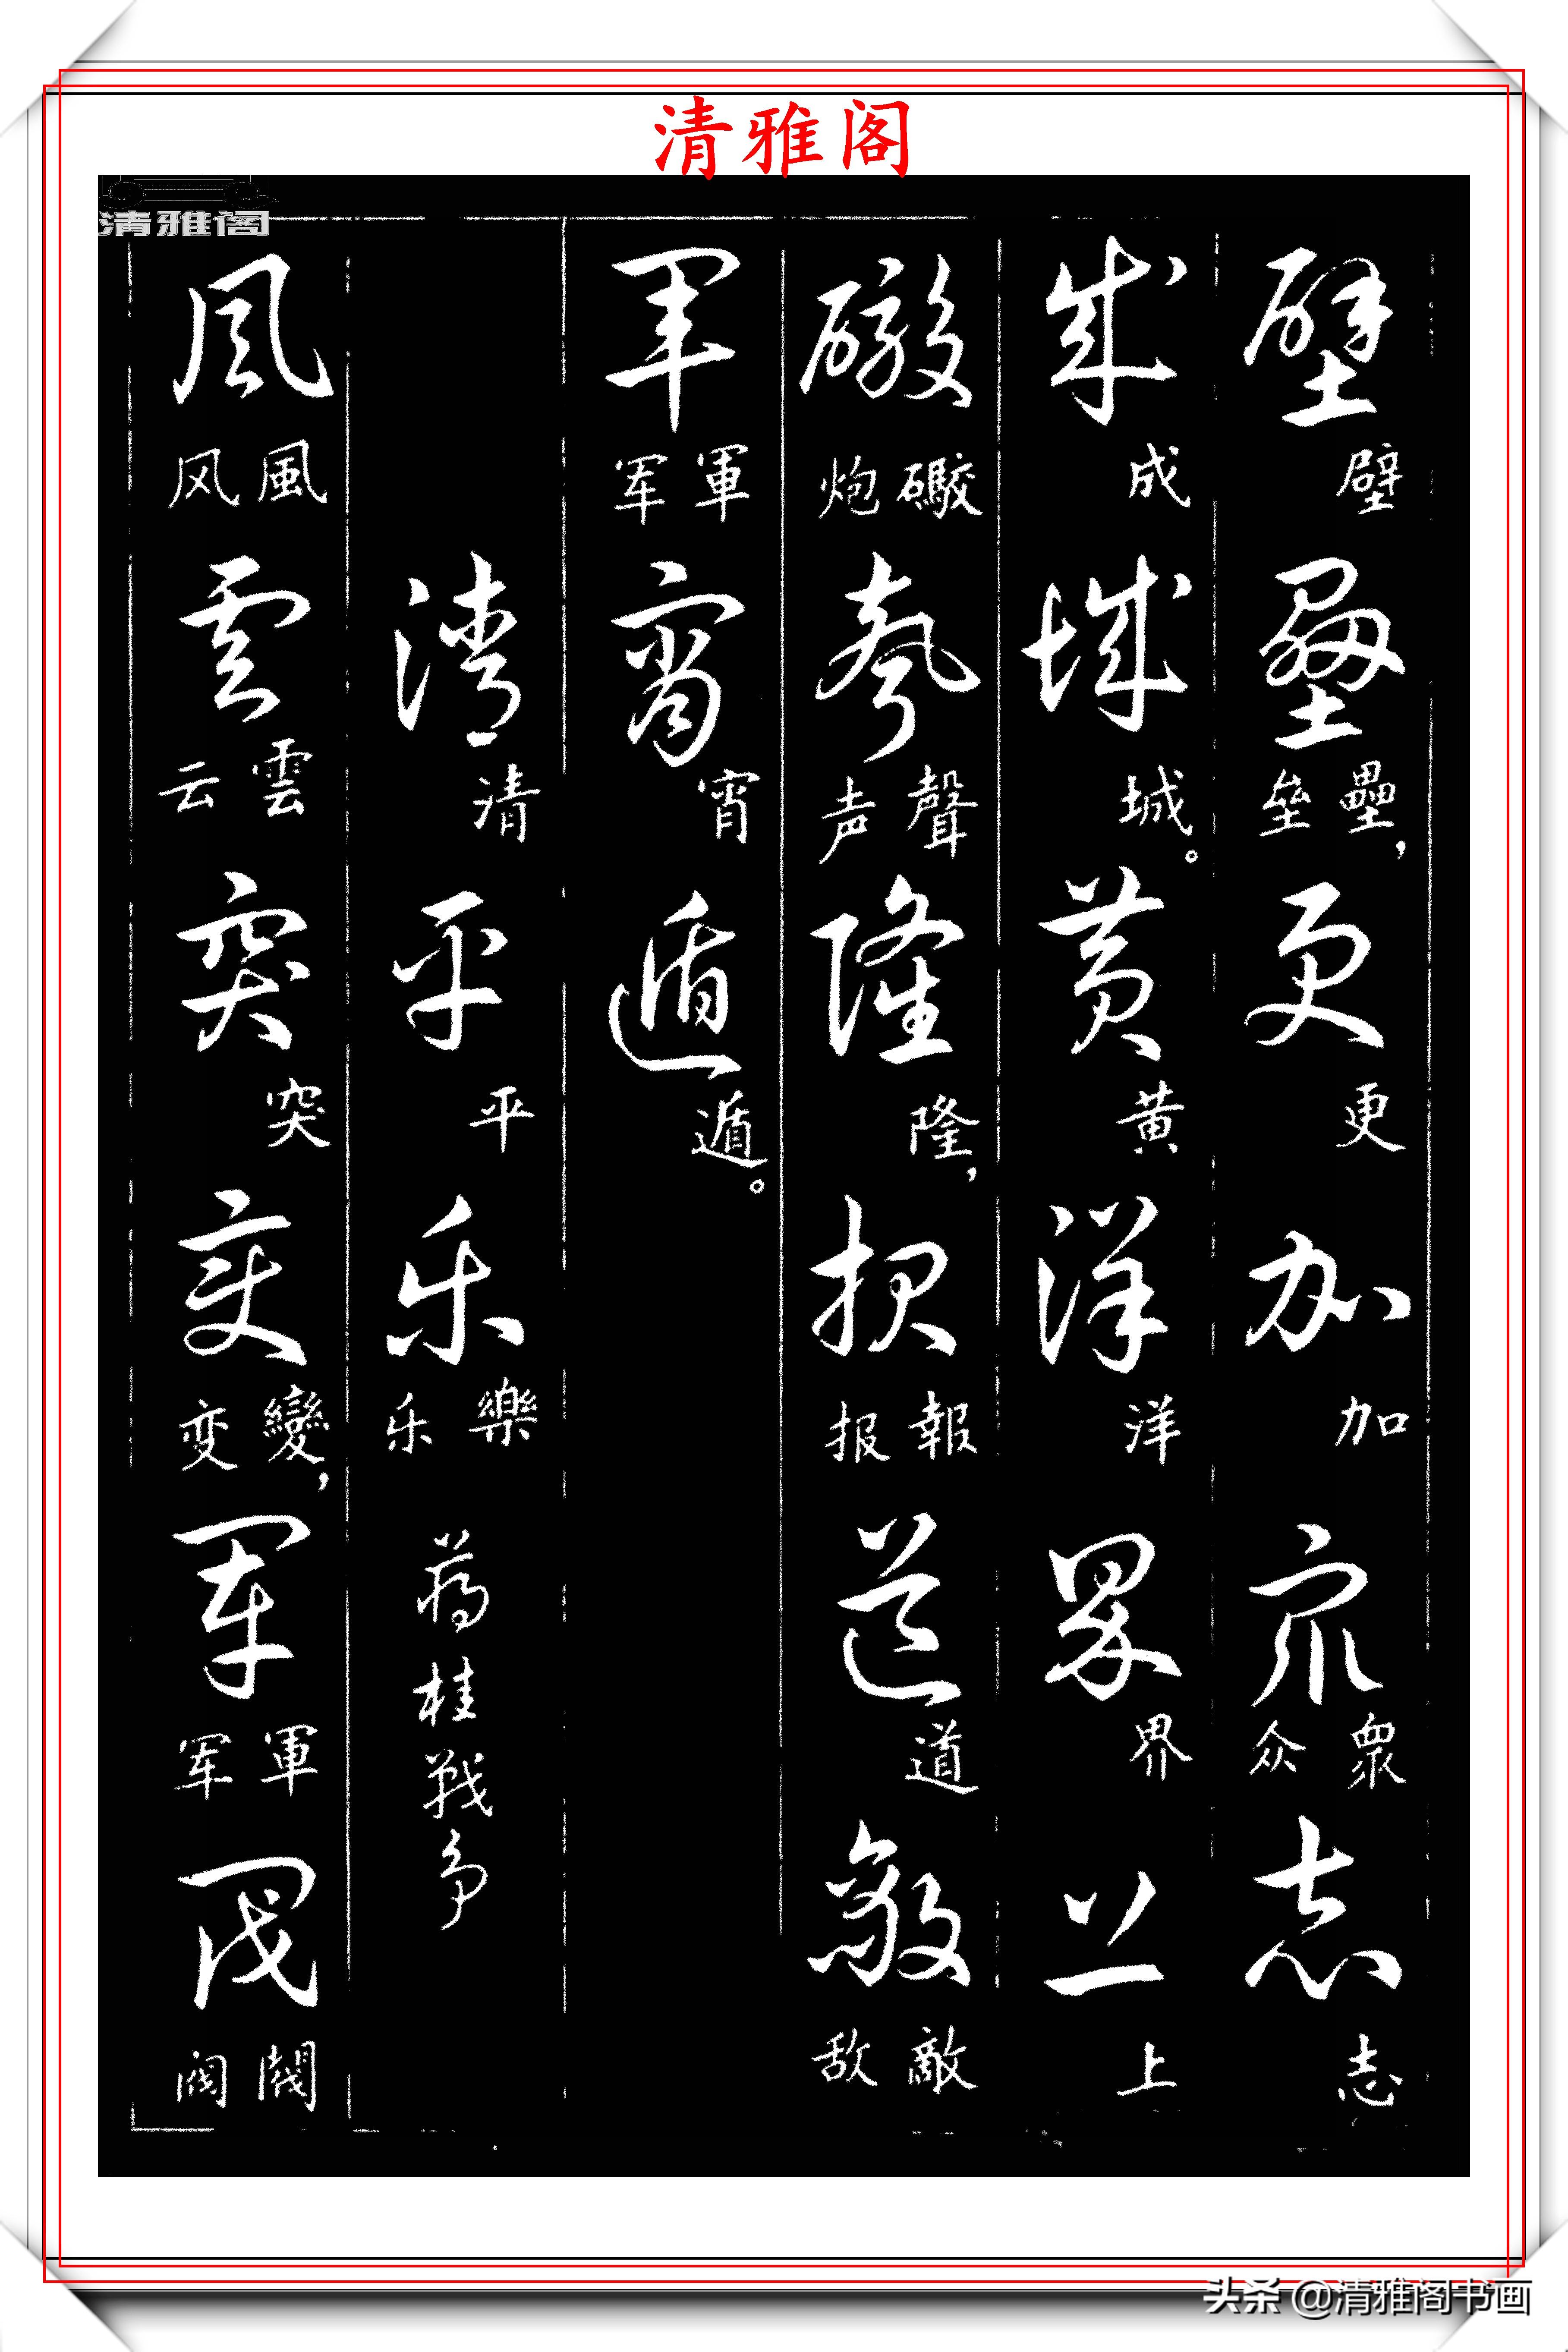 清雅阁
清雅阁
壁壁壘壘,垒更更加加眾眾众志志
成成城城。黄黄洋洋界界上上
礮礮炮聲聲声隆隆,報報报道道敵敵敌
軍軍军宵宵遁遁。
清清平平樂樂乐 蒋桂战争
風風风雲雲云突突變變,变軍軍军閥閥阀
头条 @清雅阁书画